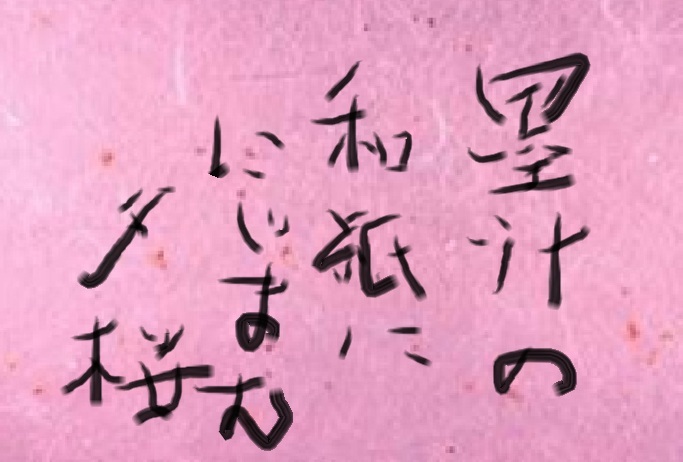 墨汁の
和紙に
にじまむ
夕桜